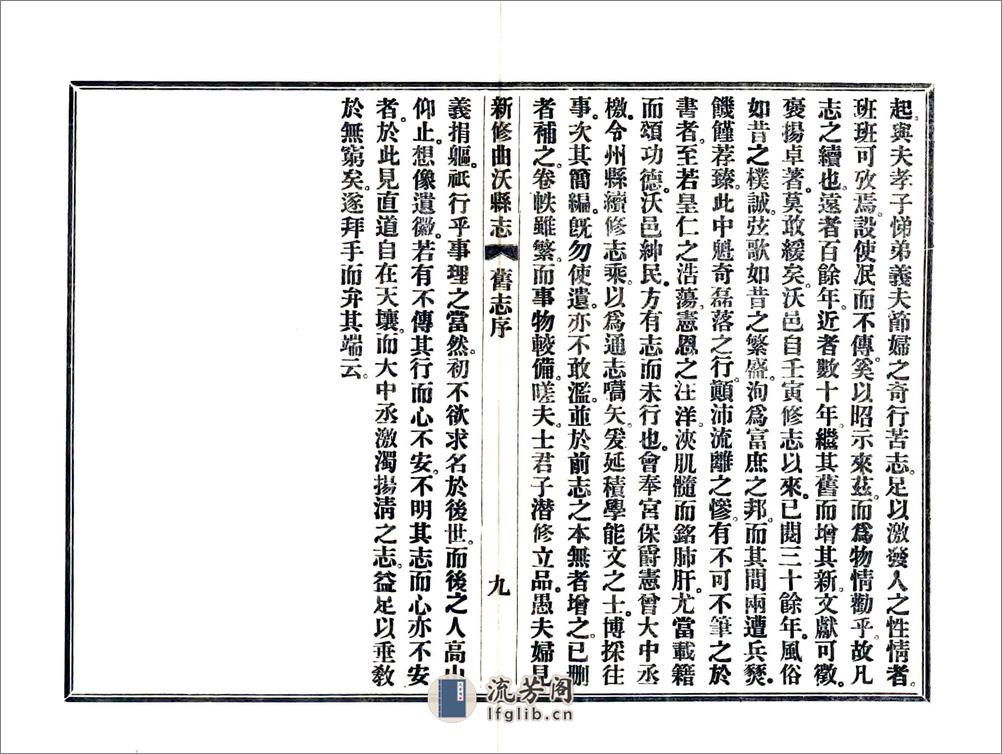 起。與夫孝子悌弟義夫節婦之奇行苦志。足以激發人之性情者。
班班可攷焉。設使泯而不傳。奚以昭示來茲。而爲物情勸乎。故凡
志之續也。遠者百餘年。近者數十年。繼其舊而增其新。文獻可徵。
褒揚卓著。莫敢緩矣。沃邑自壬寅修志以來。已閱三十餘年。風俗
如昔之樸誠。弦歌如昔之繁盛。洵爲富庶之邦。而其間兩遭兵燹。
饑饉荐臻。此中魁奇磊落之行。顛沛流離之慘。有不可不筆之於
書者。至若皇仁之浩蕩。憲恩之汪洋。浹肌髓而銘肺肝。尤當載籍
而頌功德。沃邑紳民。方有志而未行也。會奉宮保爵憲曾大中丞
檄。令州縣續修志乘。以爲通志嚆矢。爰延積學能文之士。博採往
事。次其簡編。旣勿使遺。亦不敢濫。並於前志之本無者增之。已刪
者補之。卷帙雖繁。而事物較備。嗟夫士君子潜修立品。愚夫婦見
新修曲沃縣志 舊志序 九
義捐軀。祇行乎事理之當然。初不欲求名於後世。而後之人高山
仰止。想像遺徽。若有不傳其行而心不安。不明其志而心亦不安
者。於此見直道自在天壤。而大中丞激濁揚淸之志。益足以垂敎
於無窮矣。遂拜手而弁其端云。
流芳阁
lfglib.cn